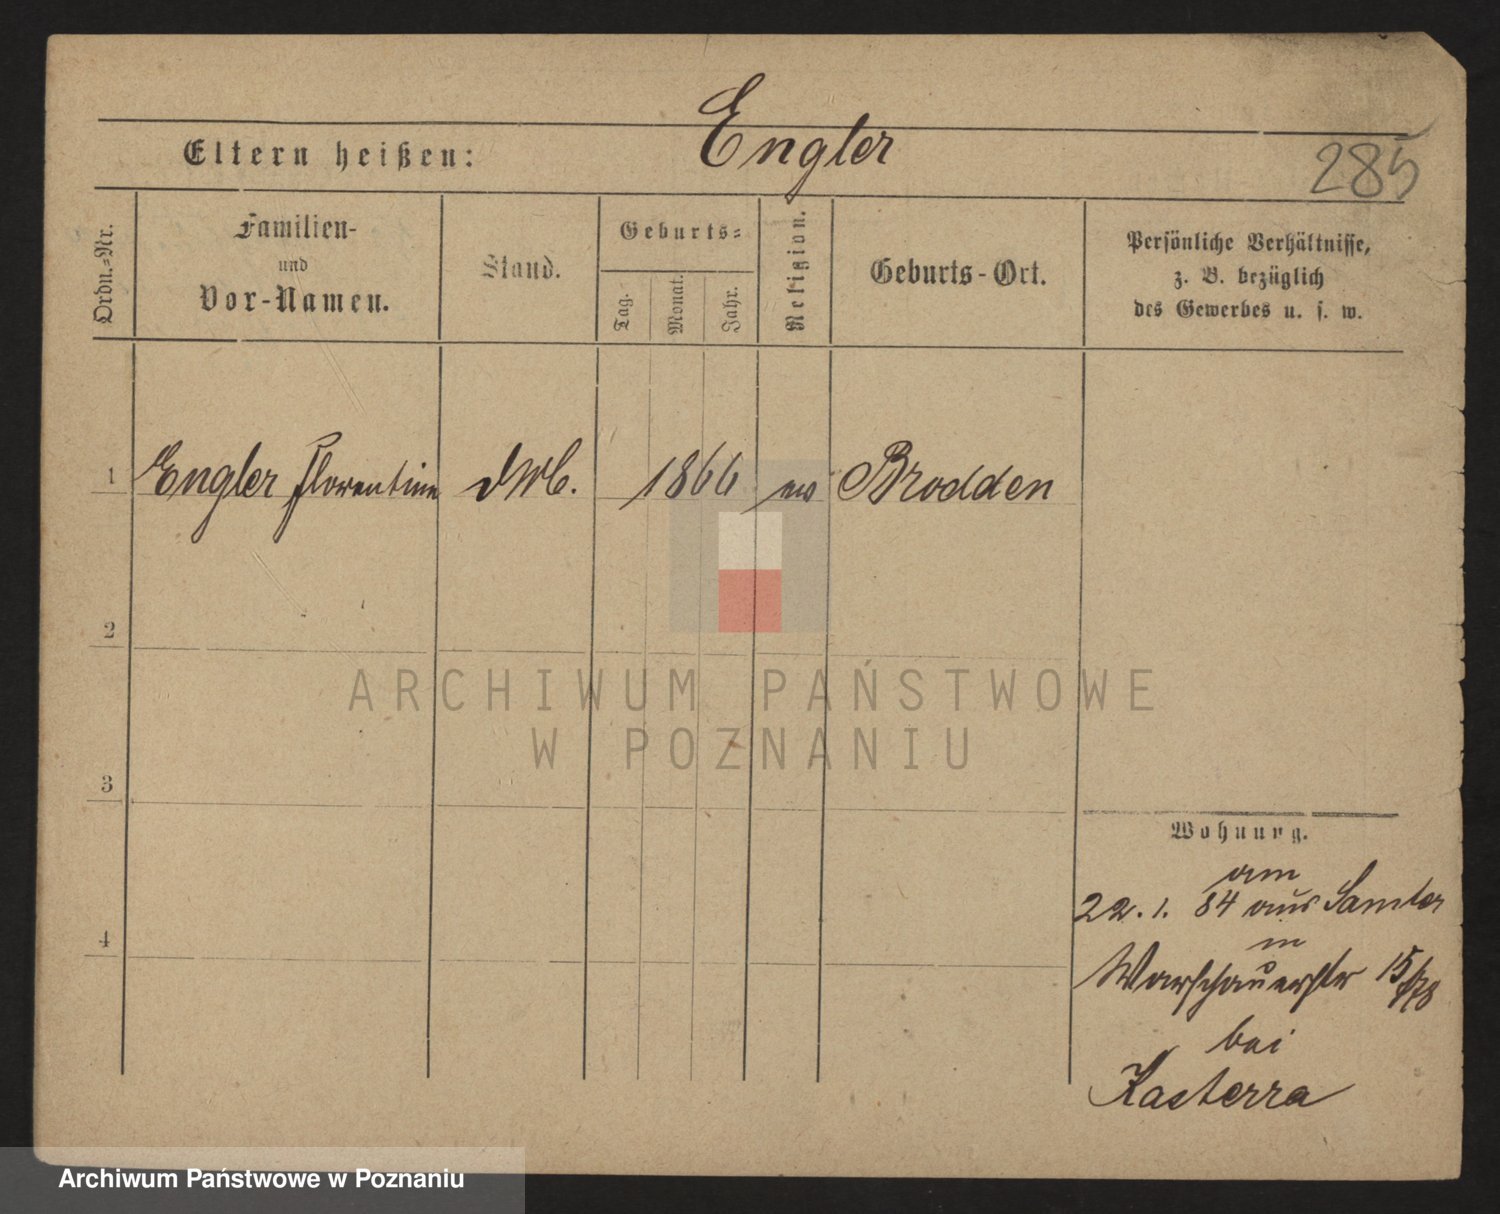 Engler
Eltern heißen:
285
Ordn.=Nr.
Familien-
und
Vor-Namen.
Stand.
Geburts=
Tag.
Monat.
Jahr.
Religion.
Geburts-Ort.
Persönliche Verhältnisse,
z. B. bezüglich
des Gewerbes u. s. w.
1 Engler Florentine 1866 ev Brodden
2
3
4
ARCHIWUM PAŃSTWOWE
W POZNANIU
Wohnung.
am
22. 1. 84 aus Samter
in
Warschauerstr 15/78
bei
Kasterra
Archiwum Państwowe w Poznaniu